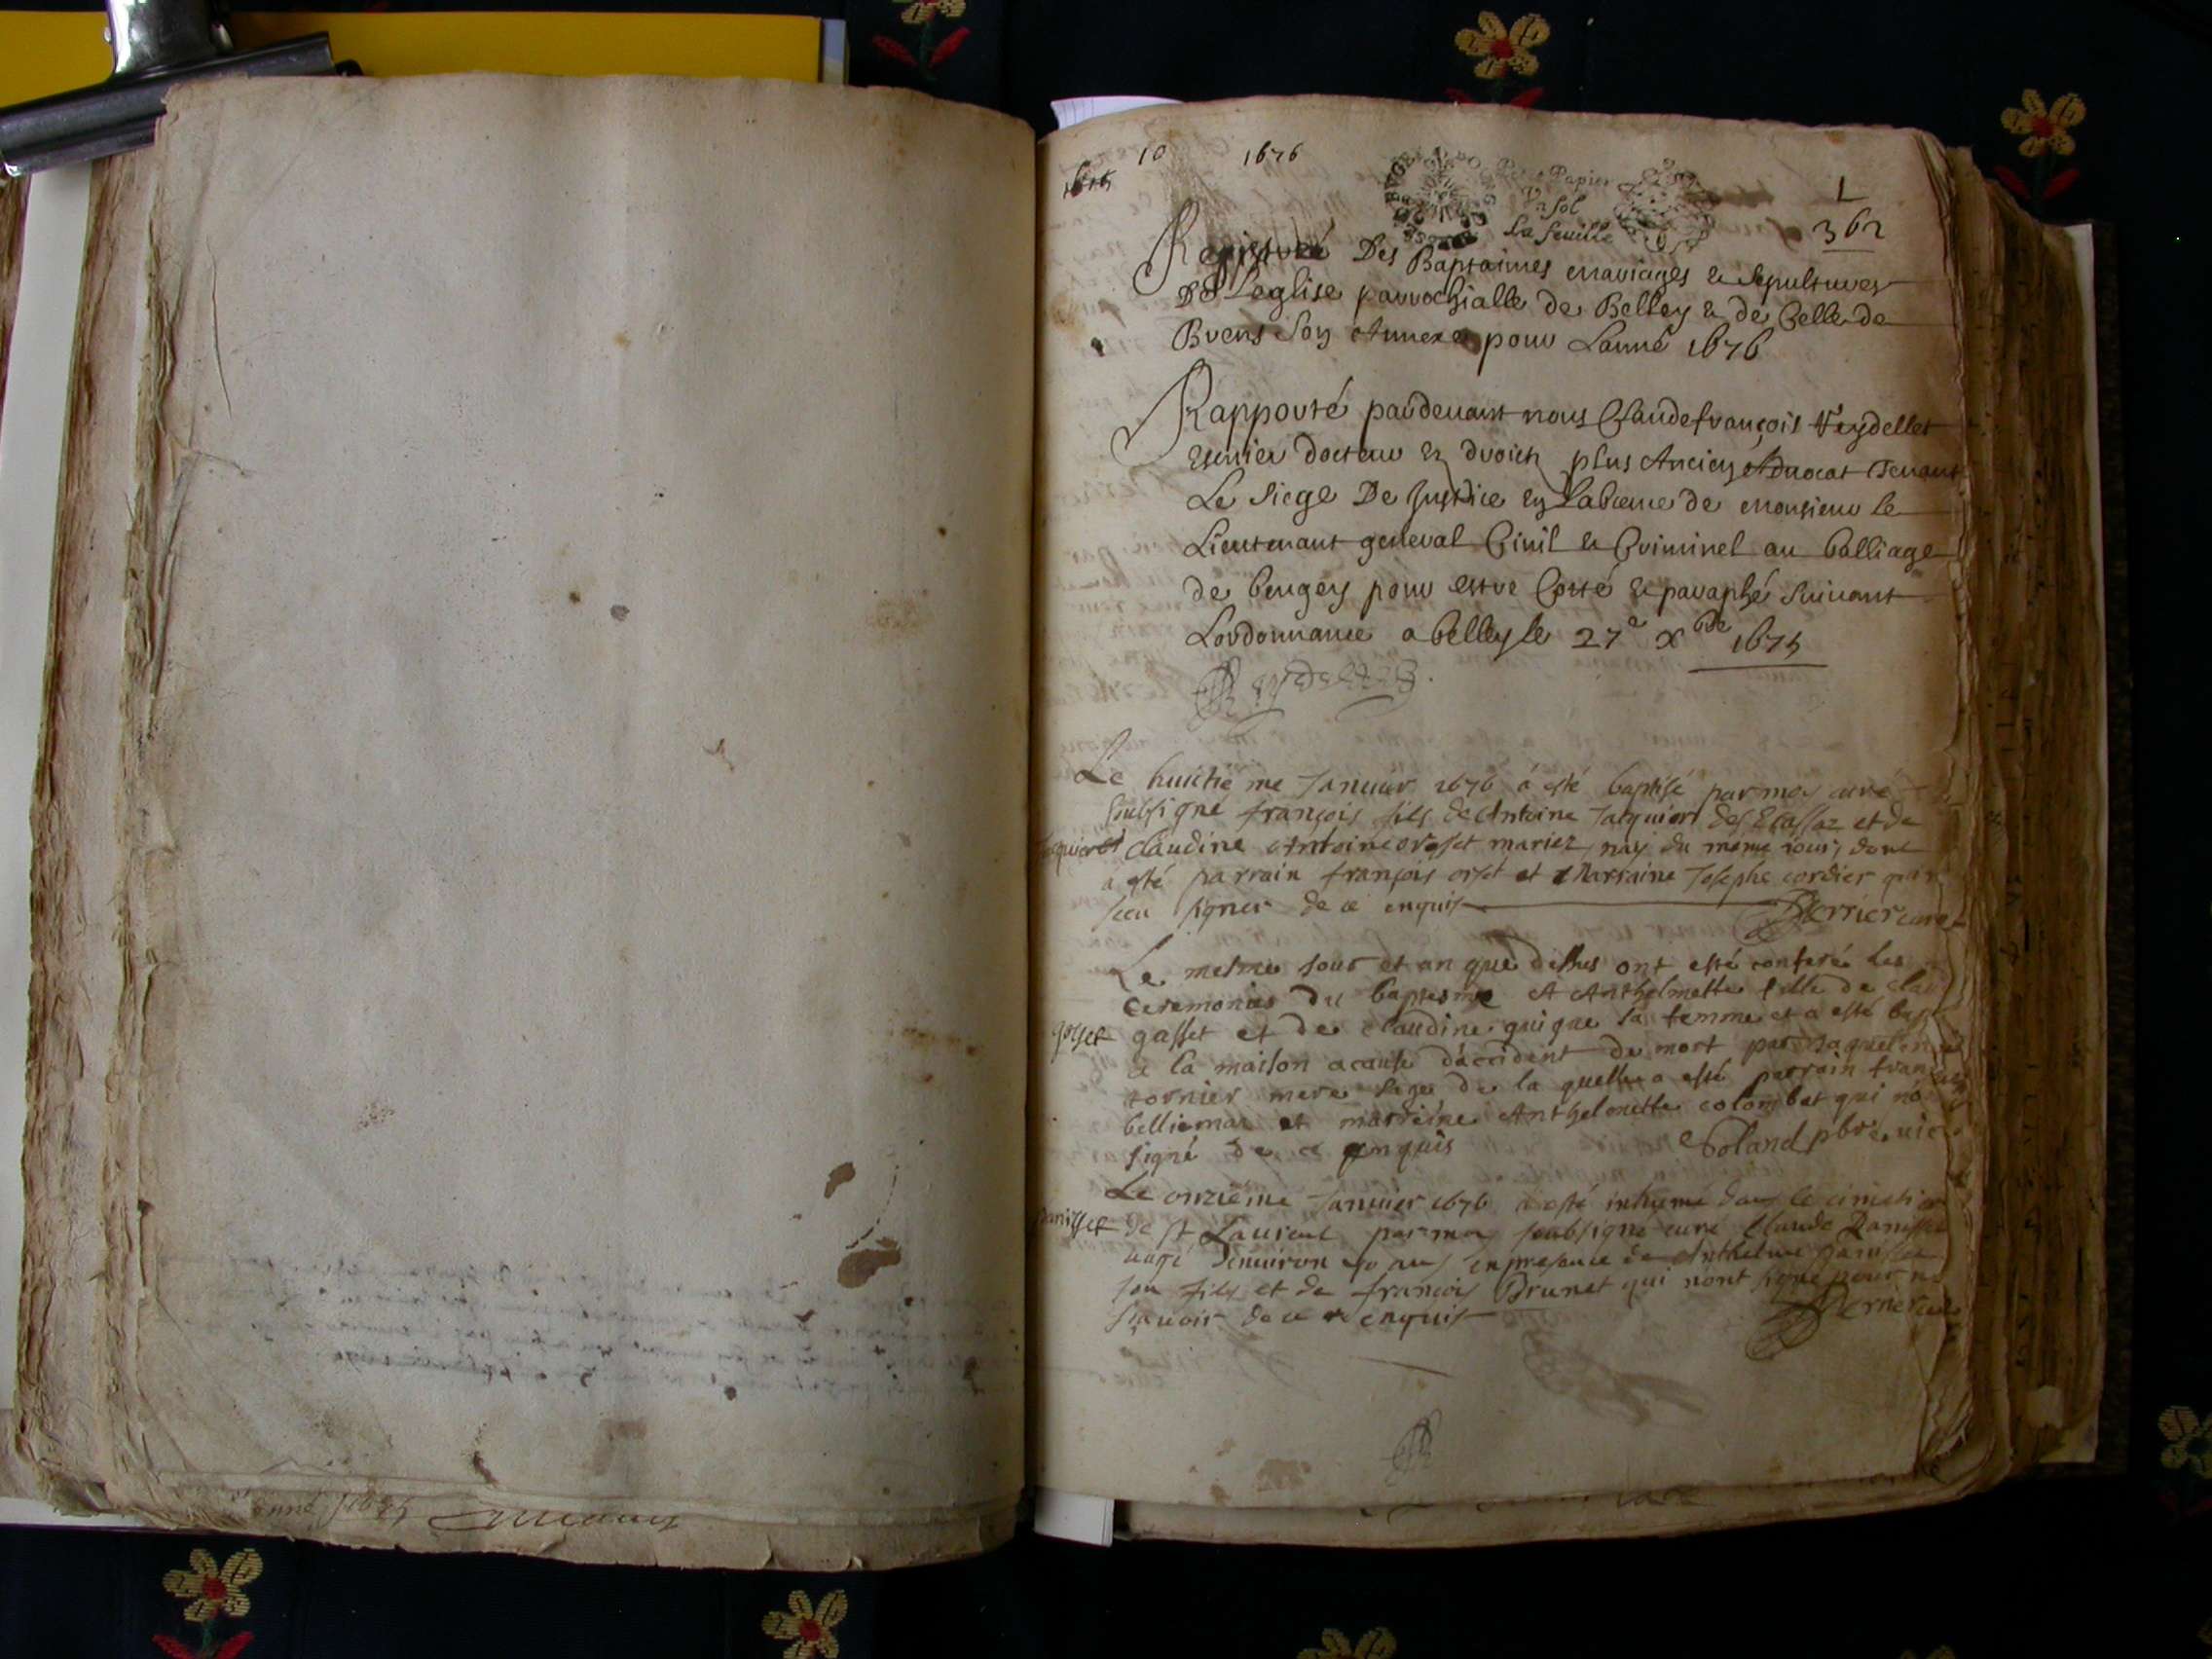 10 1676
1675
Petit Papier
Un sol
La feuille
1
362
Registre Des Baptaimes mariages & Sepultures
De Leglise parrochialle de Belley & de Celle de
Brens Son Annexe pour Lanné 1676
Rapporté pardevant nous Claudefrançois Veydellet
Escuier docteur es droictz plus Ancien Advocat Tenant
Le Siege De Justice en Labcence de monsieur le
Lieutenant general Civil & Criminel au balliage
de beugey pour estre Cotté & paraphé Suivant
Lordonnance a belley le 27e Xbre 1675
Le huictie me Januier 1676 a esté baptisé par moy curé
soubsigné françois fils de Antoine Jacquier des Ecassaz et de
claudine Antoine orset mariez nay du meme iour, dont
a esté parrain françois orset et Marraine Josephe cordier qui n
sceu signer de ce enquis Perrier curé
Le mesme Jour et an que dessus ont esté conferé les
Ceremonies du baptesme A Anthelmette fille de clau
gasset gasset et de claudine guigue sa femme et a esté bap
a la maison acause daccident de mort par Jaquel
tornier mere sage de la quelle a esté parrain fran
belliemaz et marreine Anthelmette colombet qui nó
signé de ce enquis Poland pbre, vic
Le onzieme Januier 1676 a esté inhumé dans le cimetie
Panisset de St Laurent par moy soubsigné curé Claude Panisset
aagé denuiron 50 ans en presence de Anthelme panisset
son fils et de françois Brunet qui nont signé pour n
scauoir de ce enquis Perrier curé
anné 1675